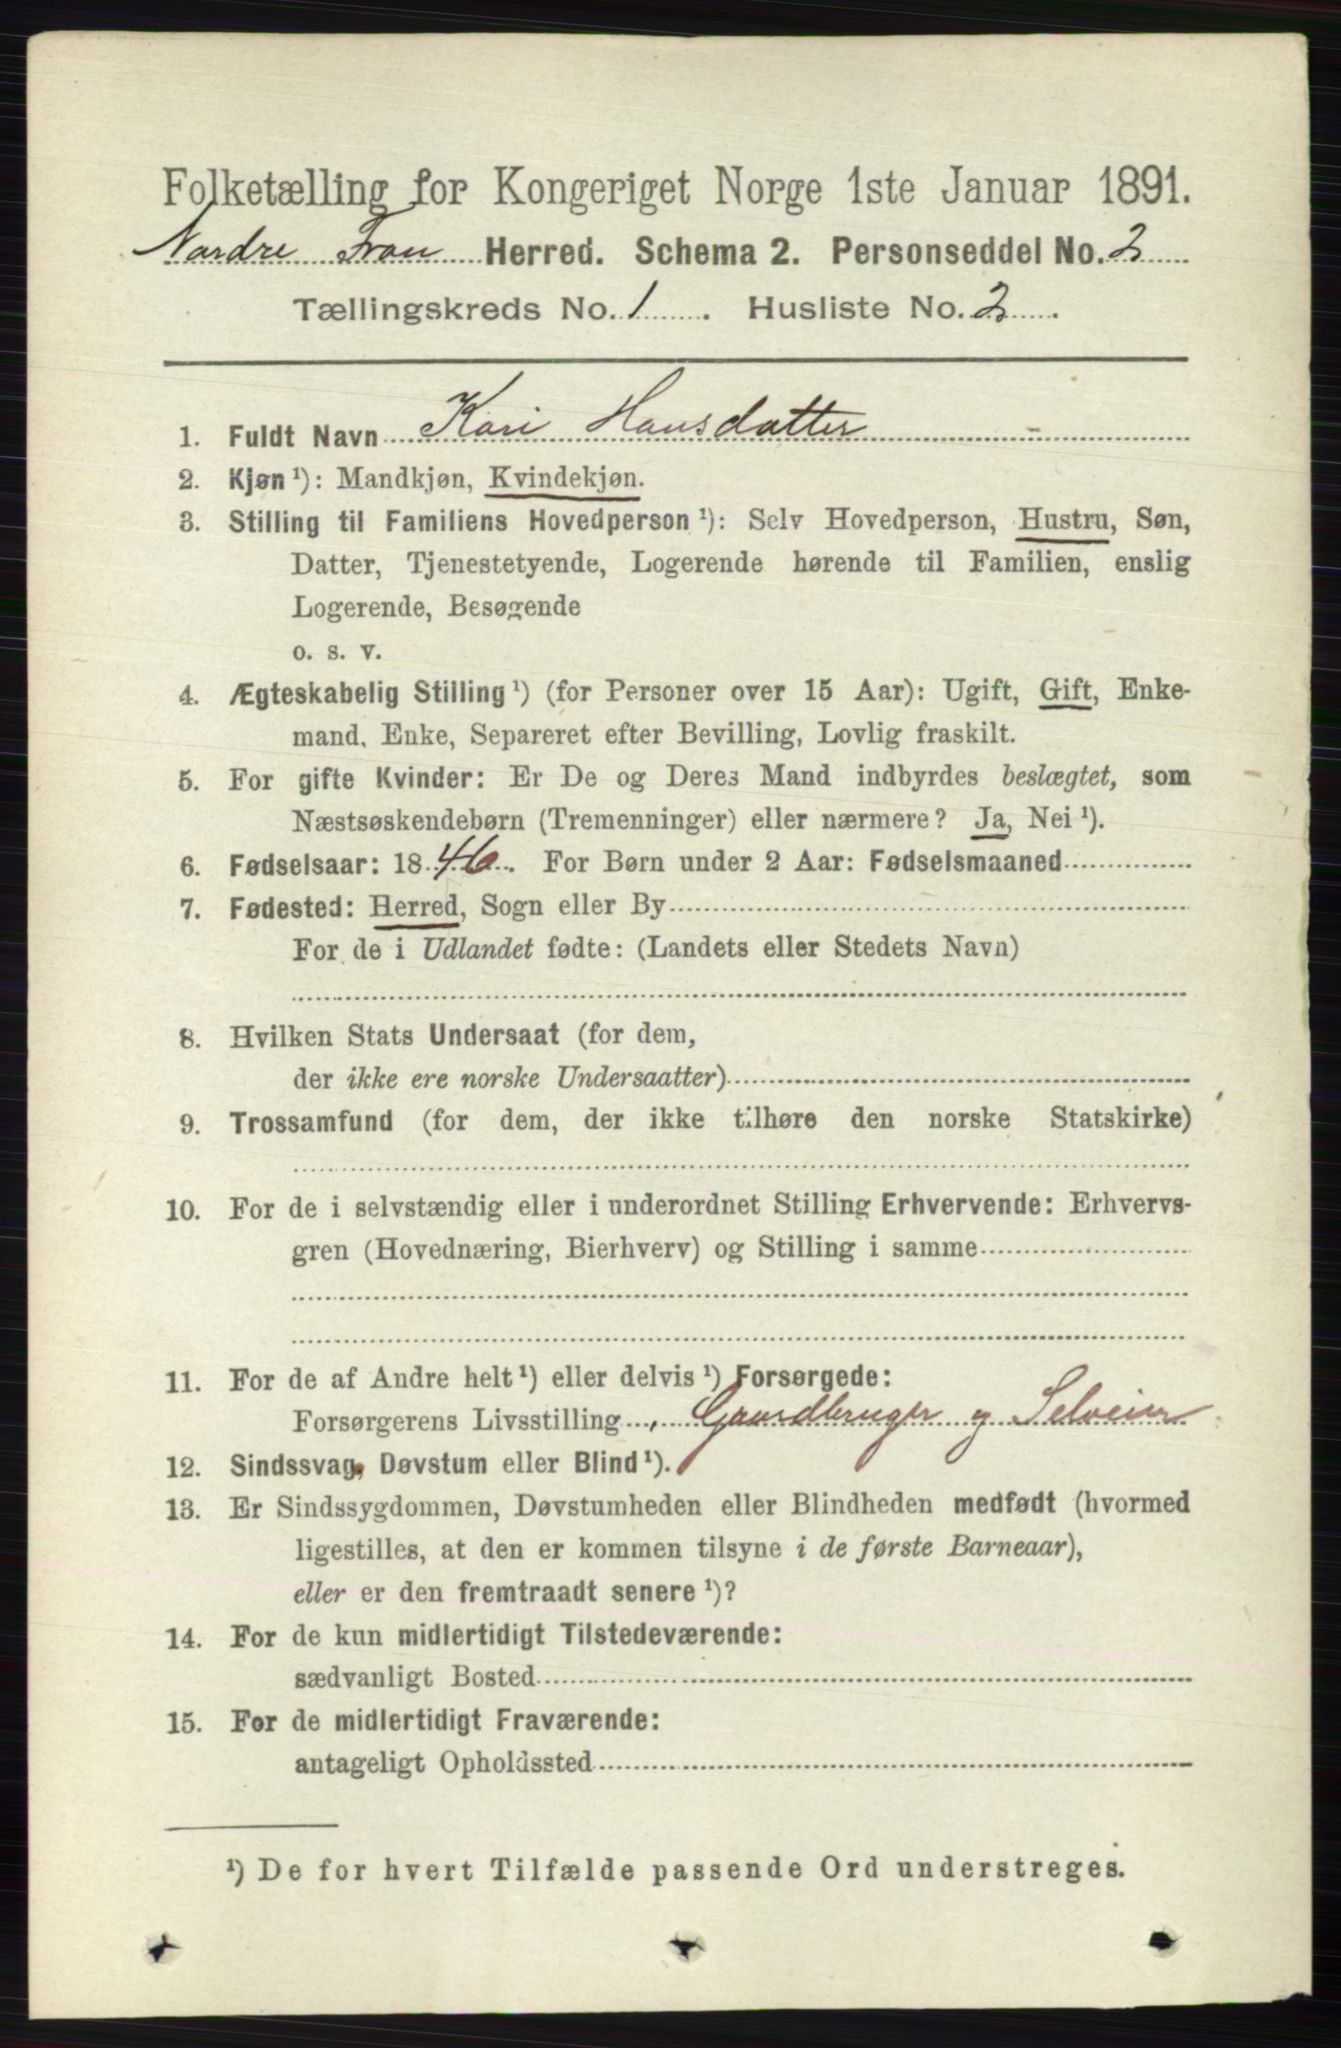 Folketælling for Kongeriget Norge 1ste Januar 1891.
Nordre Fron Herred. Schema 2. Personseddel No. 2
Tællingskreds No. 1. Husliste No. 2.
1. Fuldt Navn Kari Hansdatter
2. Kjøn ¹): Mandkjøn, Kvindekjøn.
3. Stilling til Familiens Hovedperson ¹): Selv Hovedperson, Hustru, Søn,
Datter, Tjenestetyende, Logerende hørende til Familien, enslig
Logerende, Besøgende
o. s. v.
4. Ægteskabelig Stilling ¹) (for Personer over 15 Aar): Ugift, Gift, Enke-
mand, Enke, Separeret efter Bevilling, Lovlig fraskilt.
5. For gifte Kvinder: Er De og Deres Mand indbyrdes beslægtet, som
Næstsøskendebørn (Tremenninger) eller nærmere? Ja, Nei ¹).
6. Fødselsaar: 1846. For Børn under 2 Aar: Fødselsmaaned
7. Fødested: Herred, Sogn eller By
For de i Udlandet fødte: (Landets eller Stedets Navn)
8. Hvilken Stats Undersaat (for dem,
der ikke ere norske Undersaatter)
9. Trossamfund (for dem, der ikke tilhøre den norske Statskirke)
10. For de i selvstændig eller i underordnet Stilling Erhvervende: Erhvervs-
gren (Hovednæring, Bierhverv) og Stilling i samme
11. For de af Andre helt ¹) eller delvis ¹) Forsørgede:
Forsørgerens Livsstilling, Gaardbruger og Selveier
12. Sindssvag, Døvstum eller Blind ¹).
13. Er Sindssygdommen, Døvstumheden eller Blindheden medfødt (hvormed
ligestilles, at den er kommen tilsyne i de første Barneaar),
eller er den fremtraadt senere ¹)?
14. For de kun midlertidigt Tilstedeværende:
sædvanligt Bosted
15. For de midlertidigt Fraværende:
antageligt Opholdssted
¹) De for hvert Tilfælde passende Ord understreges.